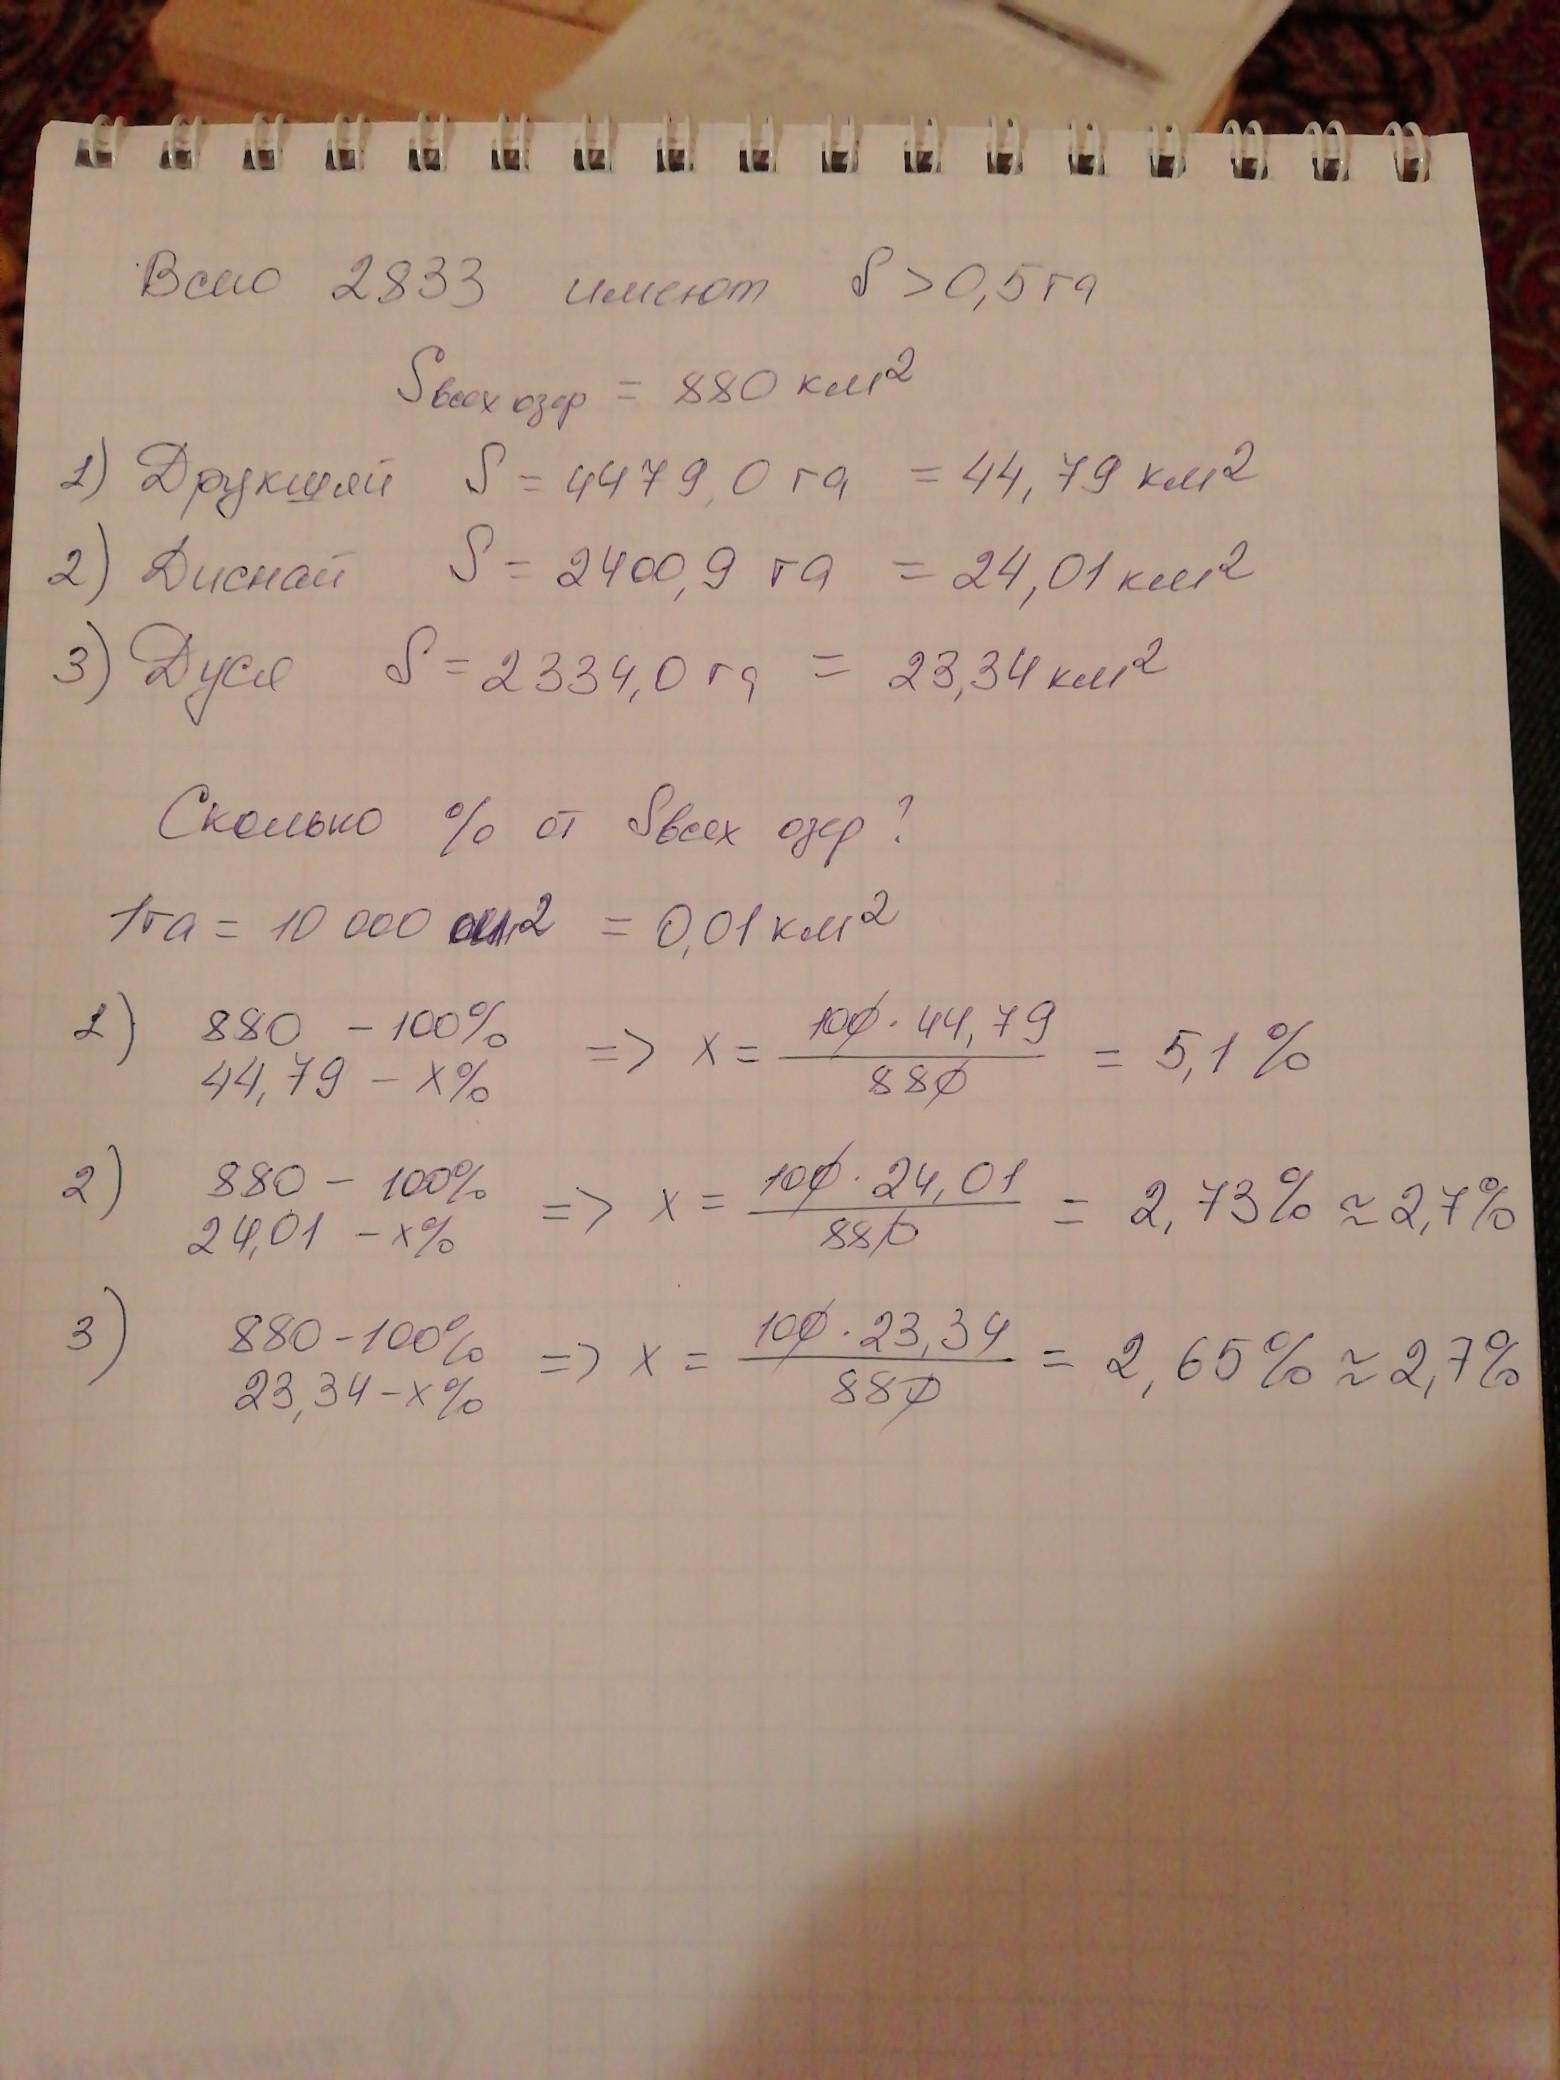 Всего 2833 имеют S > 0,5 га
S всех озер = 880 км²
1) Друкшяй S = 4479,0 га = 44,79 км²
2) Диснай S = 2400,9 га = 24,01 км²
3) Дуся S = 2334,0 га = 23,34 км²
Сколько % от S всех озер?
1га = 10 000 м² = 0,01 км²
1) 880 – 100%
44,79 – x% => x = 100 · 44,79 / 880 = 5,1 %
2) 880 – 100%
24,01 – x% => x = 100 · 24,01 / 880 = 2,73% ≈ 2,7%
3) 880 – 100%
23,34 – x% => x = 100 · 23,34 / 880 = 2,65% ≈ 2,7%